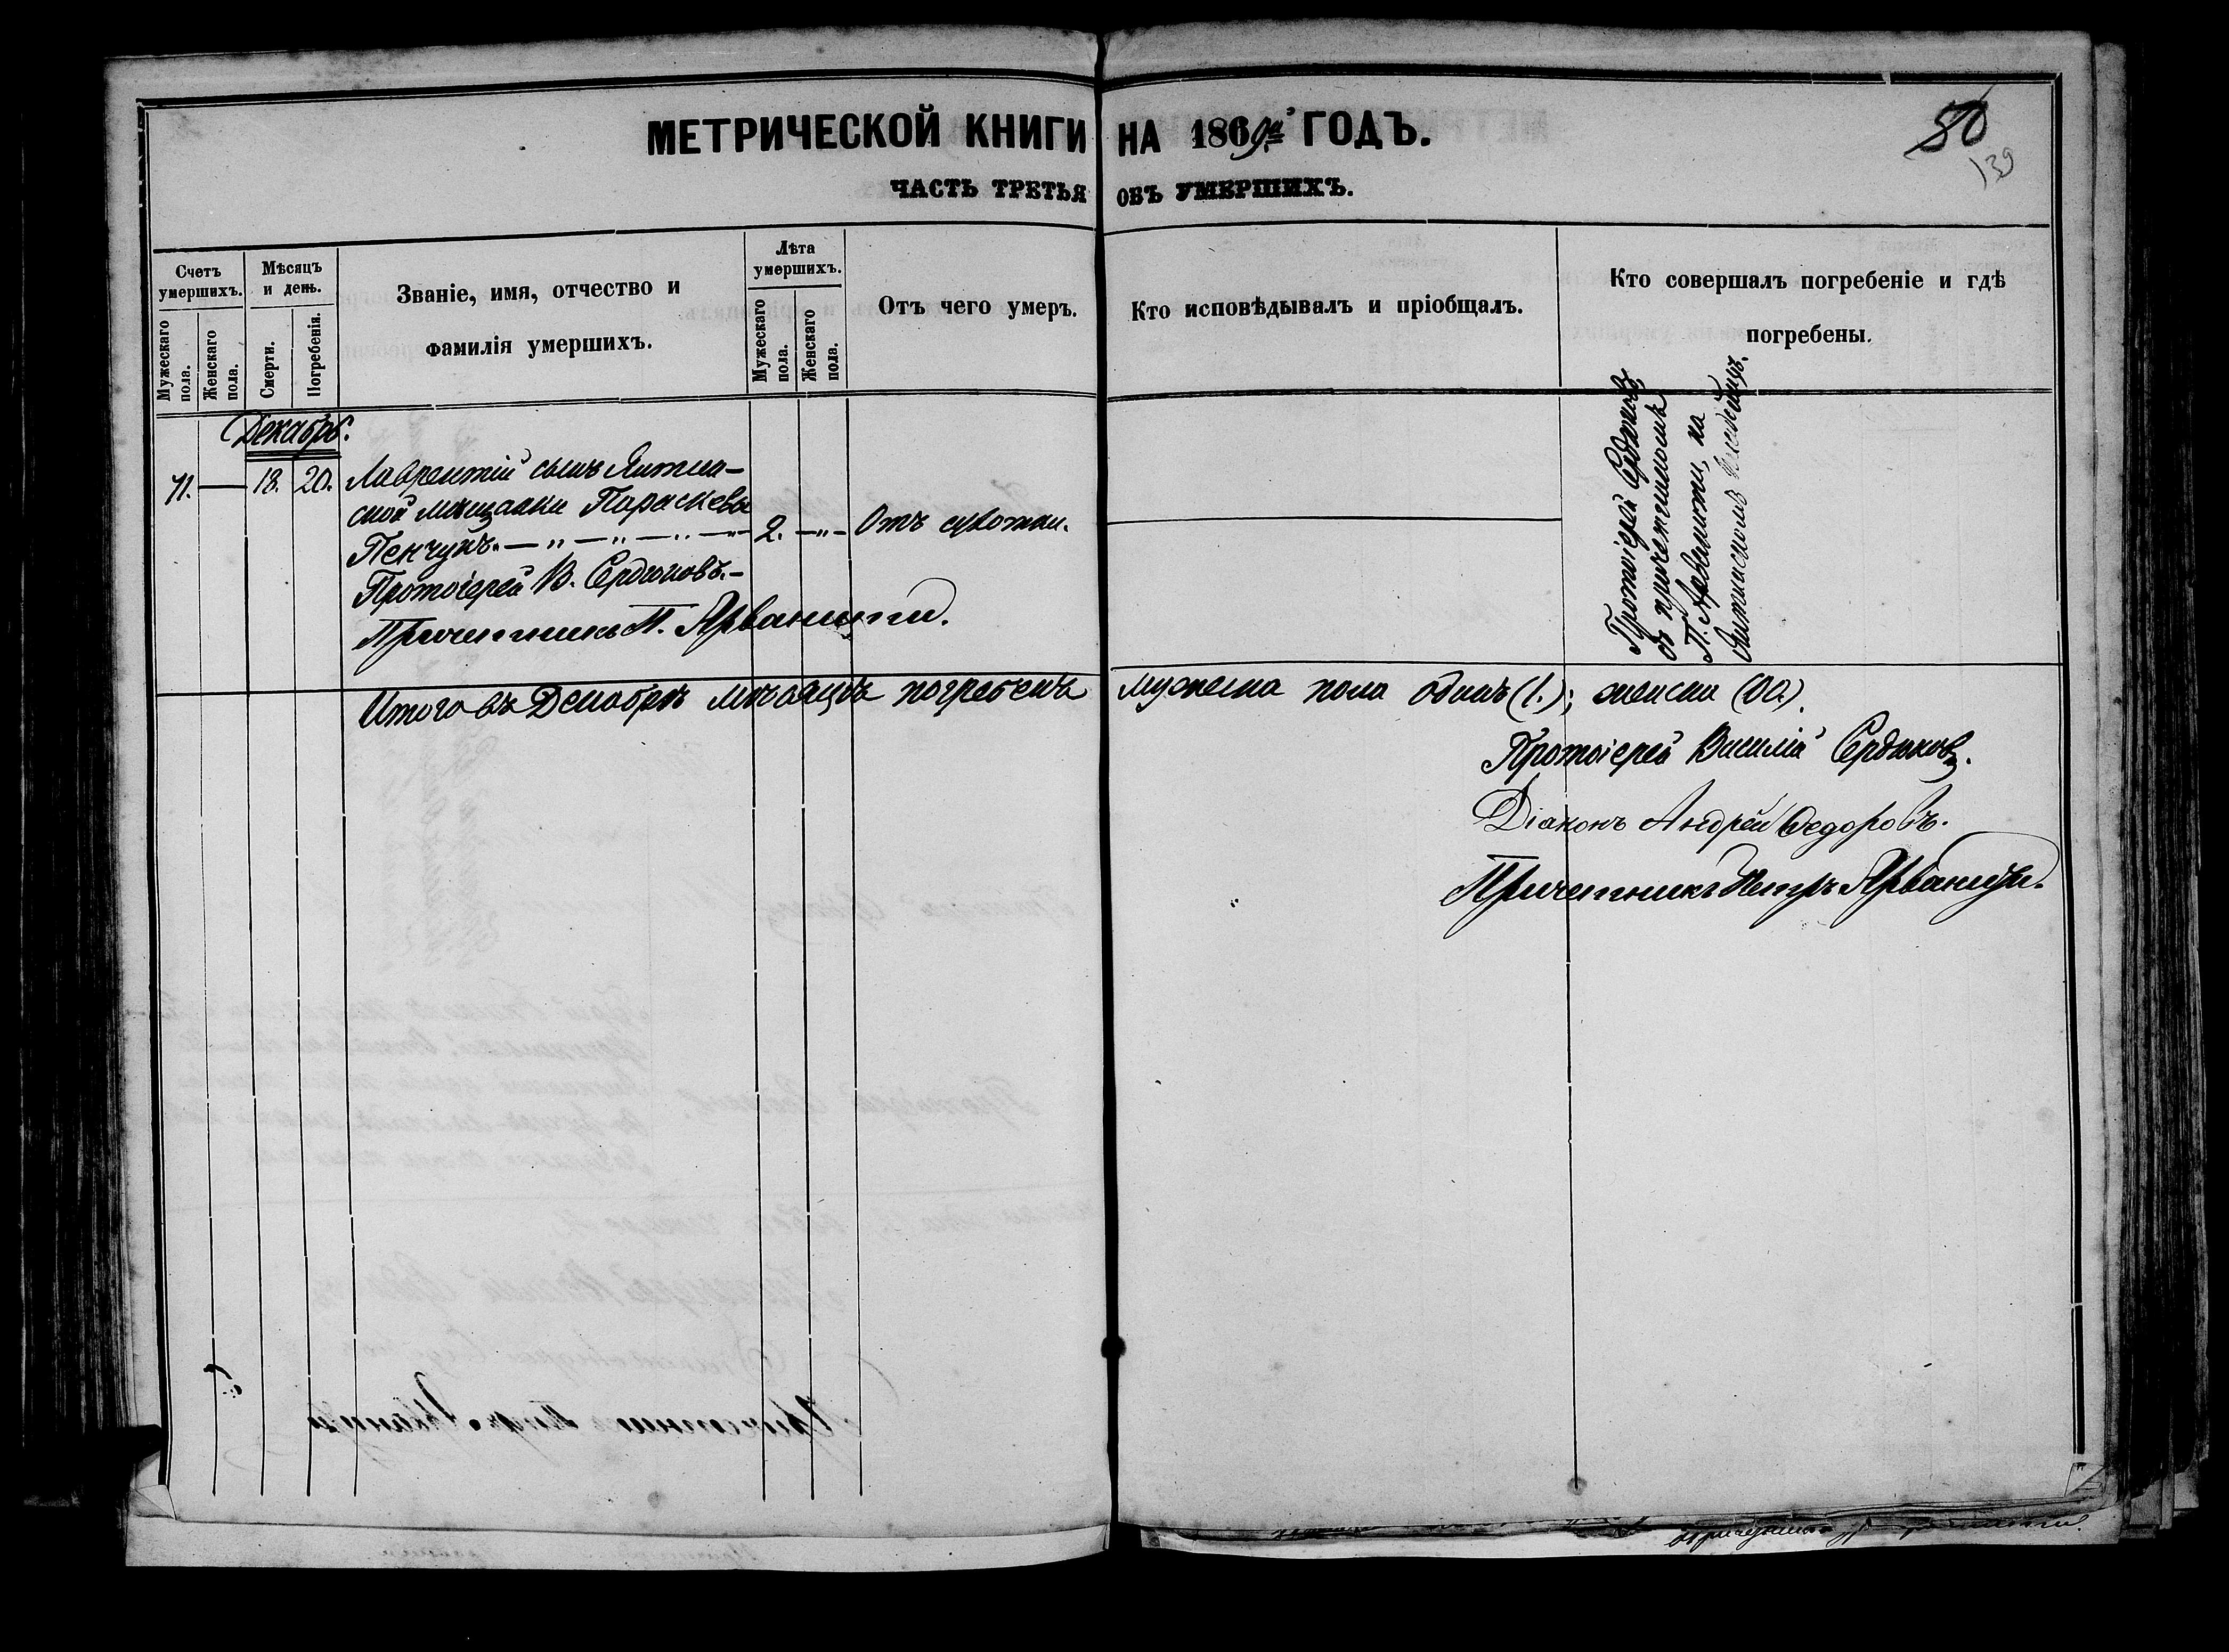 МЕТРИЧЕСКОЙ КНИГИ НА 1869й ГОДЪ.
80
139
ЧАСТЬ ТРЕТЬЯ ОБЪ УМЕРШИХЪ.
Счетъ умершихъ.
Мужескаго пола.
Женскаго пола.
Мѣсяцъ и день.
Смерти.
Погребенія.
Званіе, имя, отчество и
фамилія умершихъ.
Лѣта умершихъ.
Мужескаго пола.
Женскаго пола.
Отъ чего умеръ.
Кто исповѣдывалъ и пріобщалъ.
Кто совершалъ погребеніе и гдѣ
погребены.
Декабрь.
71. — 18. 20. Лаврентій сынъ
мѣщанки Параскевы
Пенчукъ. — „ — „ — „ — 2. — „ — Отъ сухотки.
Протоіерей В. Сердюковъ. —
Причетникъ П. Арваници.
Протоіерей Сердюковъ
съ причетникомъ
П. Арваници, на
кладбищѣ.
Итого въ Декабрѣ мѣсяцѣ погребено мужеска пола одинъ (1.); женска (00).
Протоіерей Василій Сердюковъ.
Діаконъ Андрей Ѳедоровъ.
Причетникъ Петръ Арваници.